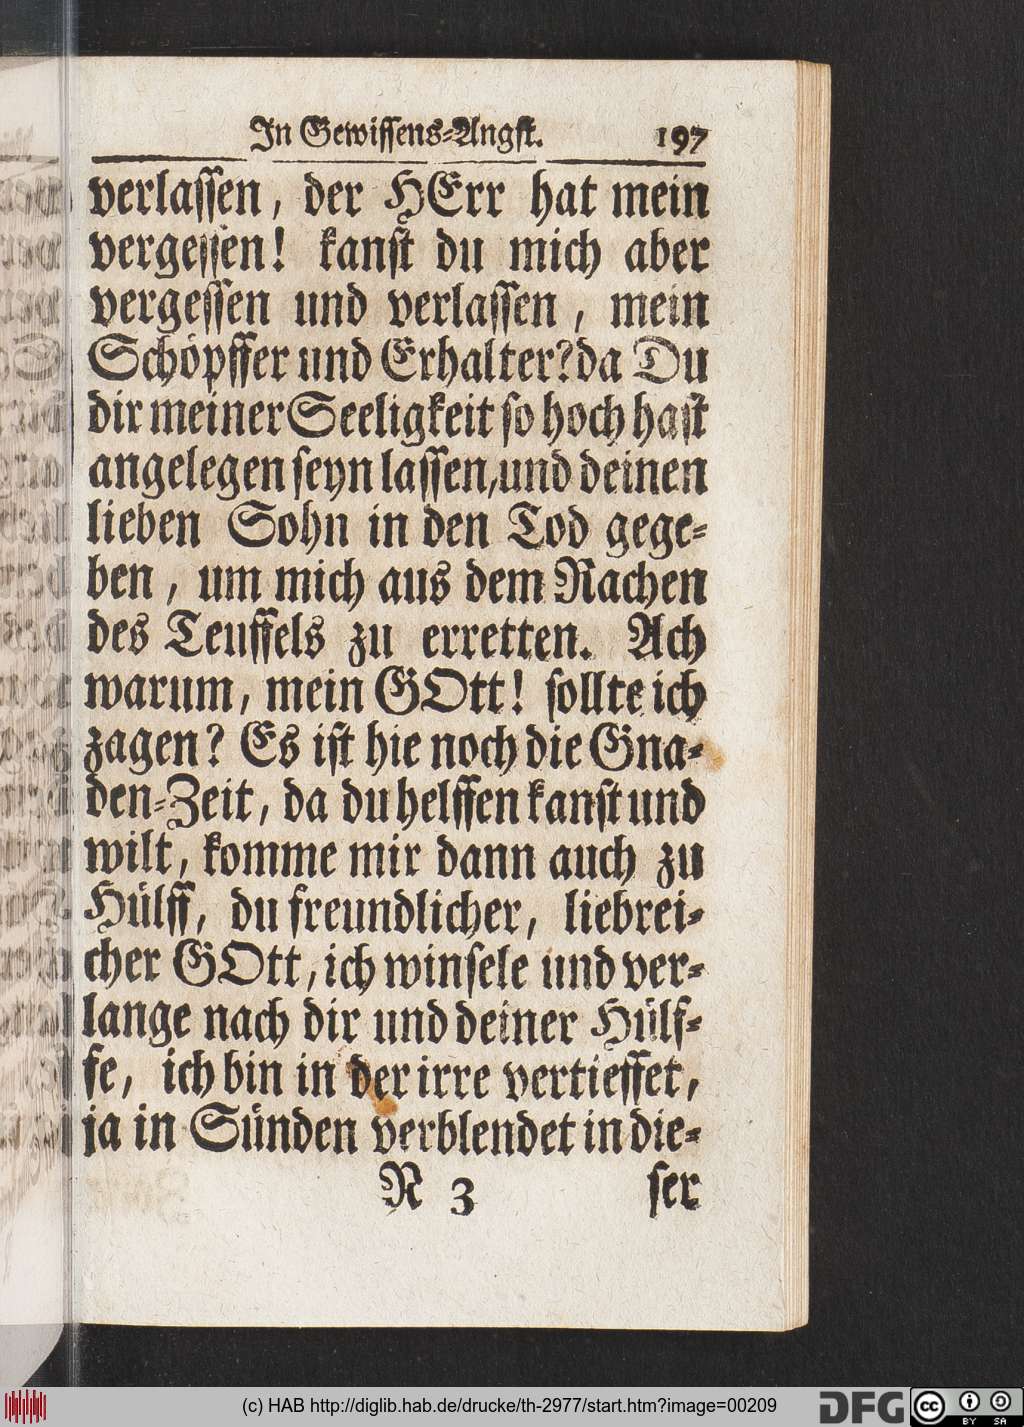 In Gewissens-Angst. 197
verlassen, der HErr hat mein
vergessen! kanst du mich aber
vergessen und verlassen, mein
Schöpffer und Erhalter? da Du
dir meiner Seeligkeit so hoch hast
angelegen seyn lassen, und deinen
lieben Sohn in den Tod gege-
ben, um mich aus dem Rachen
des Teuffels zu erretten. Ach
warum, mein GOtt! sollte ich
zagen? Es ist hie noch die Gna-
den-Zeit, da du helffen kanst und
wilt, komme mir dann auch zu
Hülff, du freundlicher, liebrei-
cher GOtt, ich winsele und ver-
lange nach dir und deiner Hülf-
fe, ich bin in der irre vertieffet,
ja in Sünden verblendet in die-
N 3 ser
(c) HAB http://diglib.hab.de/drucke/th-2977/start.htm?image=00209
DFG cc BY SA